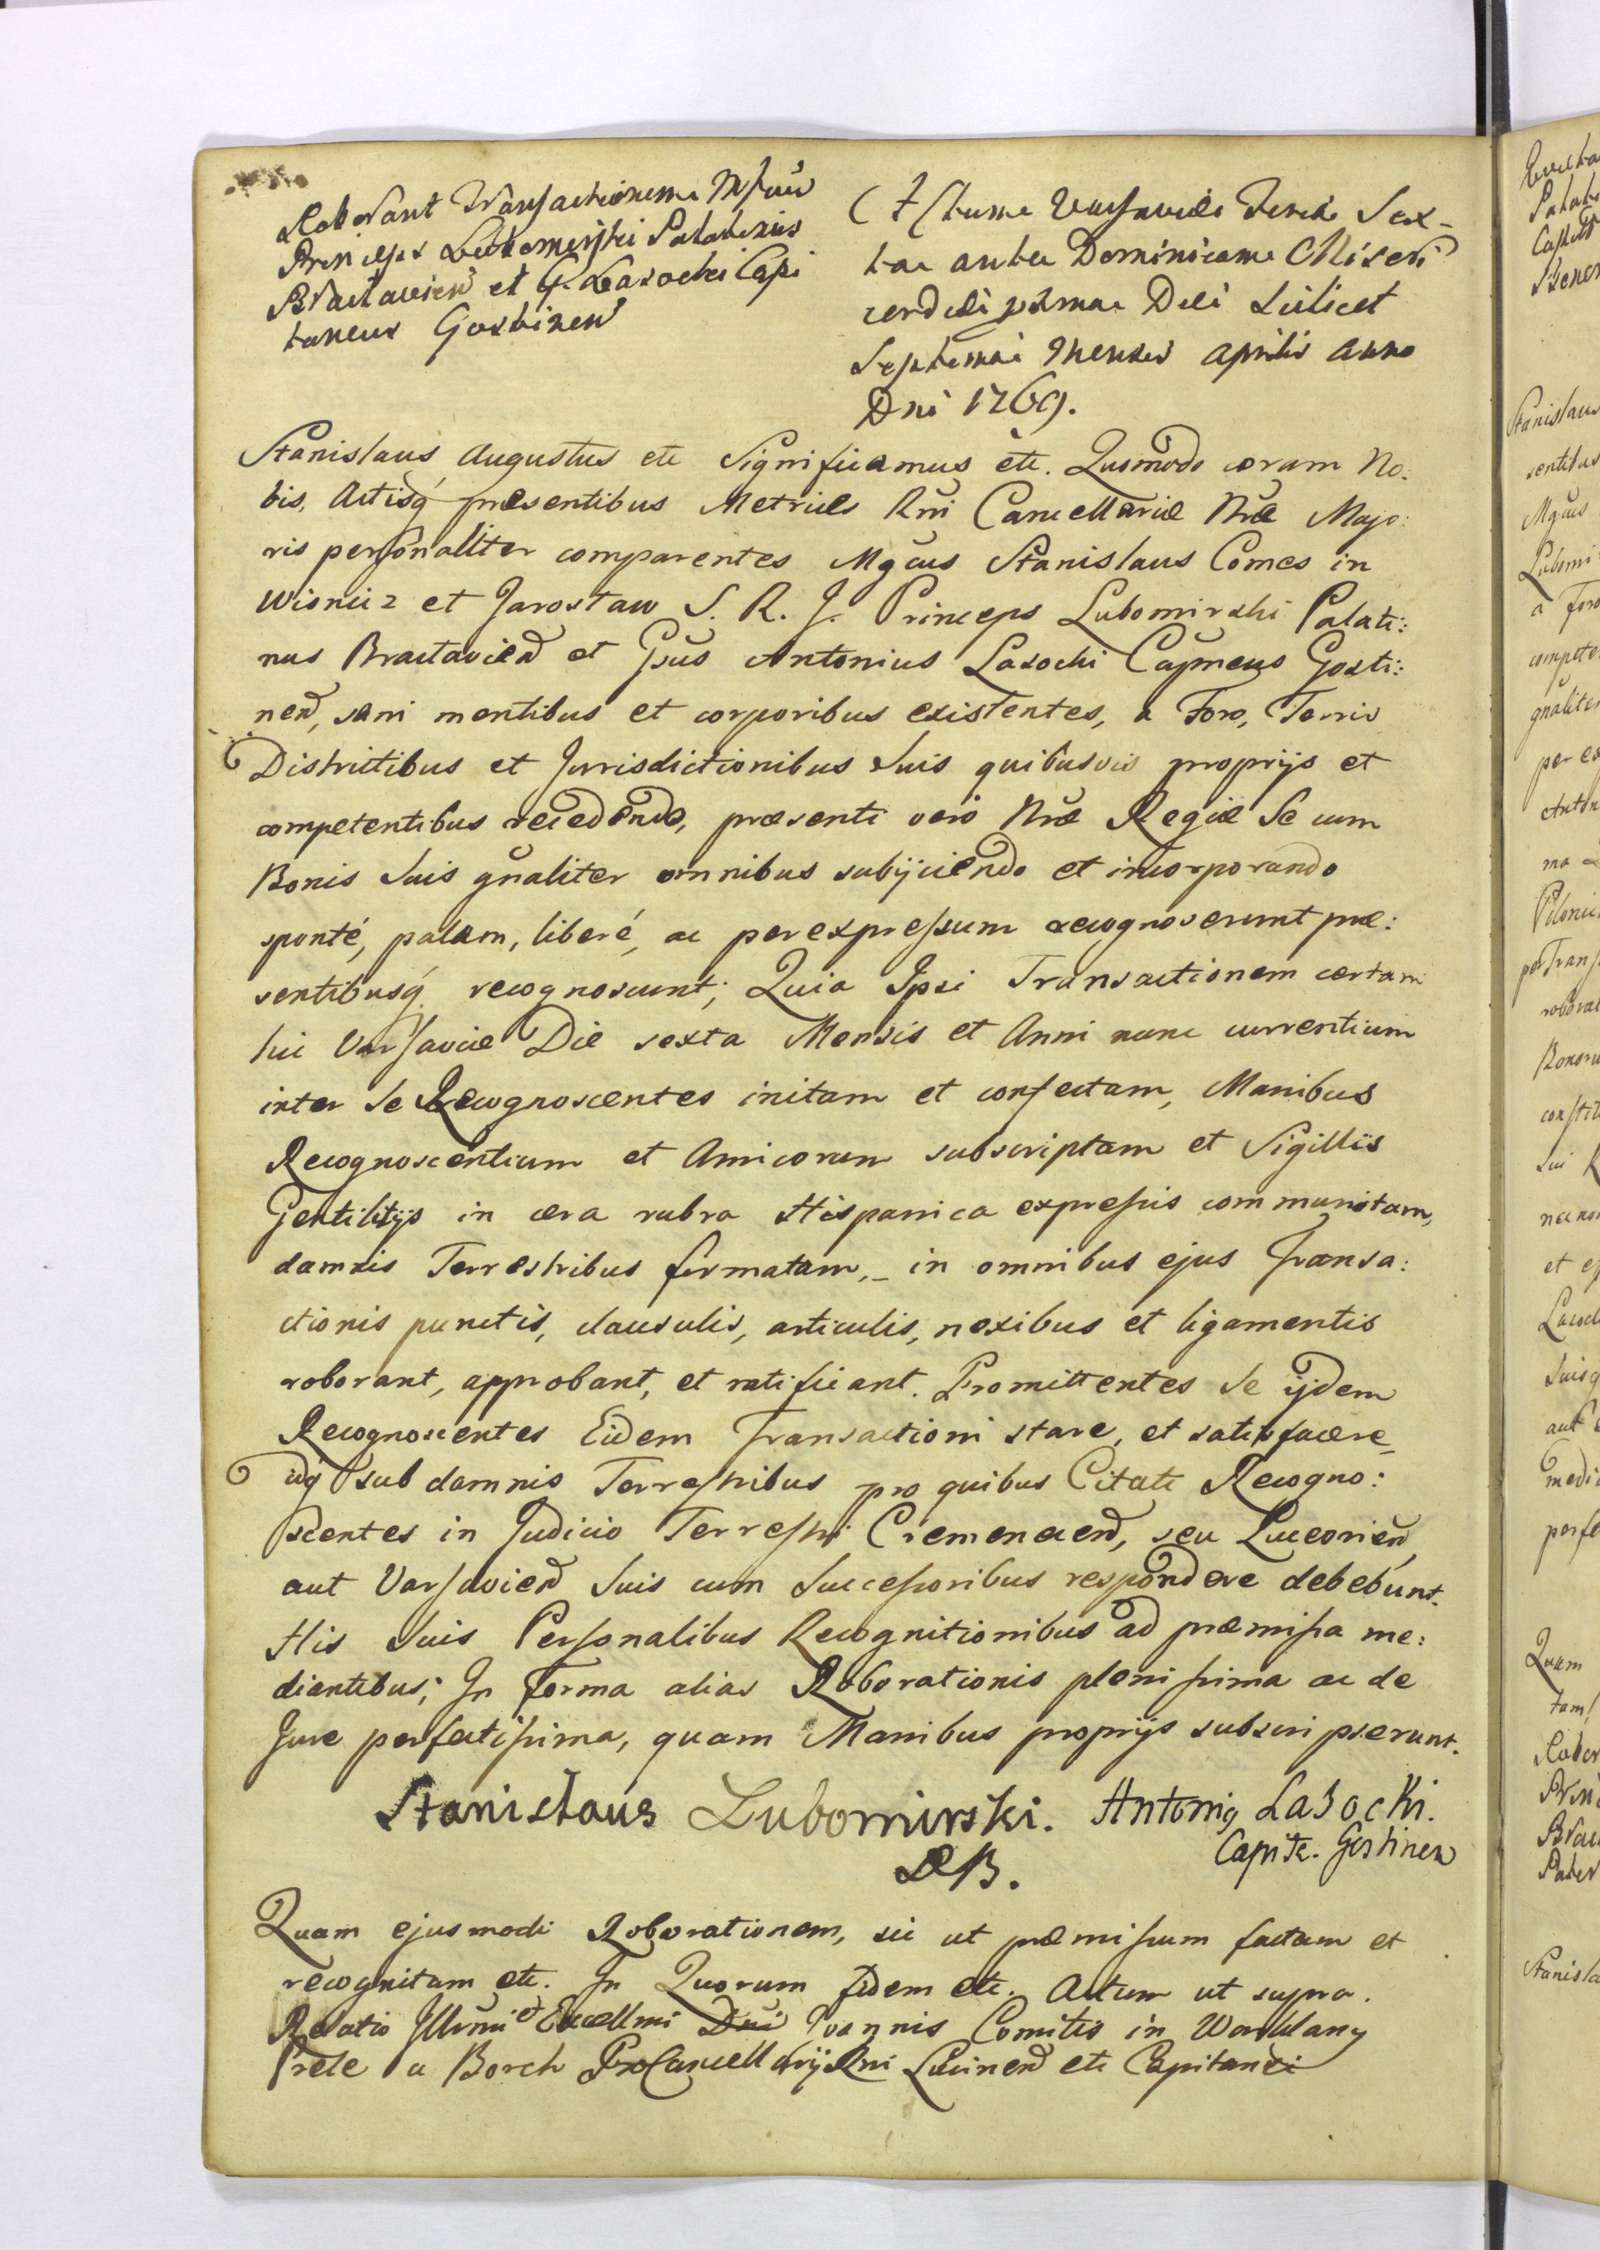 Roborant Transactionem Mfcus
Princeps Lubomirski Palatinus
Braclavien et G. Lasocki Capi
taneus Gostinen
Actum Varsaviae Feria Sex-
ta ante Dominicam Miseri
cordiae proxima Die Scilicet
Septima Mensis Aprilis Anno
Dni 1769.
Stanislaus Augustus etc Significamus etc. Quomodo coram No:
bis, Actisq́ praesentibus Metrices Rni Cancellariae Nrae Majo:
ris personaliter comparentes Mgcus Stanislaus Comes in
Wisnicz et Jarosław S. R. J. Princeps Lubomirski Palati:
nus Bractavien et Gsus Antonius Lasocki Capneus Gosti:
nen, sani mentibus et corporibus existentes, a Foro, Terris
Districtibus et Jurisdictionibus Suis quibusvis proprijs et
competentibus recedendo, praesenti vero Nrae Regiae Se cum
Bonis Suis gnaliter omnibus subijciendo et incorporando
sponté, palam, liberé, ac per expressum recognoverunt prae:
sentibusq́ recognoscunt; Quia Ipsi Transactionem certam
hic Varsaviae Die sexta Mensis et Anni nunc currentium
inter Se Recognoscentes initam et confectam, Manibus
Recognoscentium et Amicorum subscriptam et Sigillis
Gentilitijs in cera rubra Hispanica expressis communitam,
damnis Terrestribus firmatam, - in omnibus ejus Transa:
ctionis punctis, clausulis, articulis, nexibus et ligamentis
roborant, approbant, et ratificant. Promittentes Se ijdem
Recognoscentes Eidem Transactioni stare, et satisfacere
idq́ sub damnis Terrestribus pro quibus Citati Recogno:
scentes in Judicio Terrestri Cremenecen, seu Luceorien,
aut Varsavien Suis cum Successoribus respondere debebunt.
His Suis Personalibus Recognitionibus ad praemissa me:
diantibus; In Forma alias Roborationis plenissima ac de
Jure perfectissima, quam Manibus proprijs subscripserunt.
Stanislaus Lubomirski. Antonig Lasocki.
Capite. Gostinen
Quam ejusmodi Roborationem, sic ut praemissum factam et
recognitam etc. In Quorum fidem etc. Actum ut supra.
Relatio Illrmi et Excellmi Dni Joannis Comitis in Warklany
Prele a Borch ProCancellarij Rni Lucinen etc Capitanei